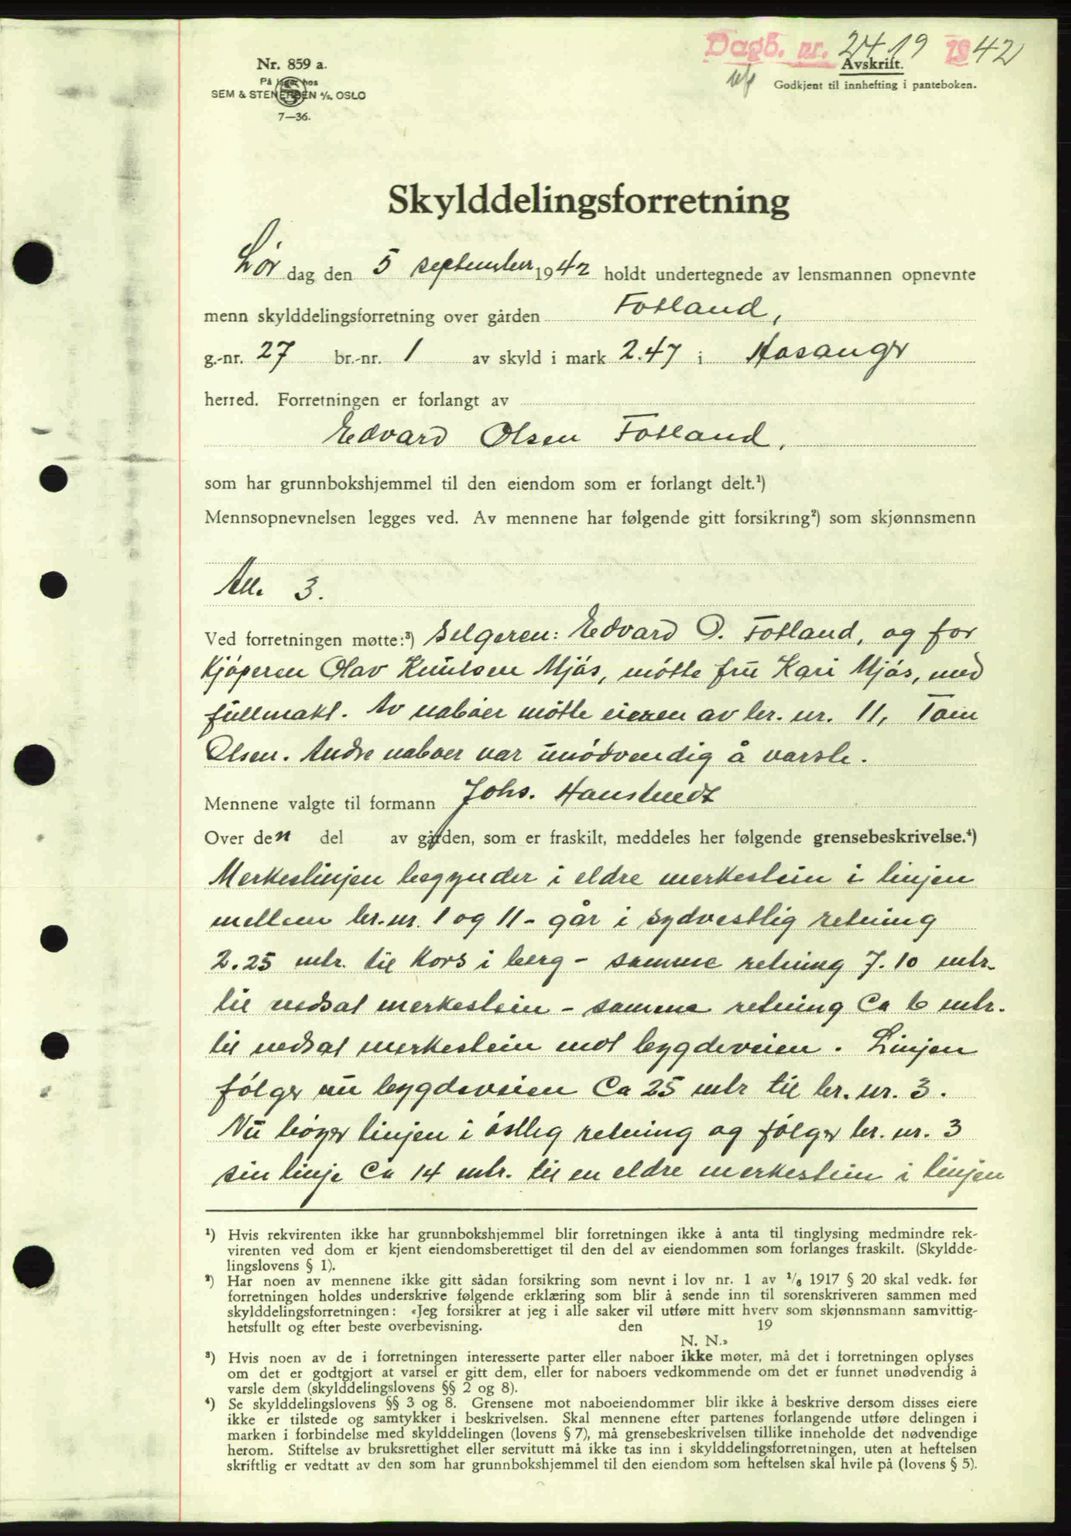 Dagb. nr. 2419 1942
Nr. 859 a.
På lager hos
SEM & STENERSEN A/S, OSLO
7—36.
Avskrift.
Godkjent til innhefting i panteboken.
Skylddelingsforretning
Lør dag den 5 september 1942 holdt undertegnede av lensmannen opnevnte
menn skylddelingsforretning over gården Fotland,
g.-nr. 27 br.-nr. 1 av skyld i mark 2.47 i Hosanger
herred. Forretningen er forlangt av
Edvard Olsen Fotland,
som har grunnbokshjemmel til den eiendom som er forlangt delt.¹)
Mennsopnevnelsen legges ved. Av mennene har følgende gitt forsikring²) som skjønnsmenn
Alle 3.
Ved forretningen møtte:³) Selgeren: Edvard O. Fotland, og for
Kjøperen Olav Knutsen Mjøs, møtte fru Kari Mjøs, med
fullmakt. Av naboer møtte eieren av br. nr. 11, Tom
Olsen. Andre naboer var unødvendig å varsle.
Mennene valgte til formann Johs.
Over den del av gården, som er fraskilt, meddeles her følgende grensebeskrivelse.⁴)
Merkeslinjen begynder i eldre merkestein i linjen
mellem br. nr. 1 og 11 - går i sydvestlig retning
2.25 mtr. til kors i berg - samme retning 7.10 mtr.
til nedsat merkestein - samme retning Ca 6 mtr.
til nedsat merkestein mot bygdeveien. Linjen
følger nu bygdeveien Ca 25 mtr til br. nr. 3.
Nu bøyer linjen i østleg retning og følger br. nr. 3
sin linje Ca 14 mtr. til en eldre merkestein i linjen
¹) Hvis rekvirenten ikke har grunnbokshjemmel blir forretningen ikke å anta til tinglysing medmindre rek-
virenten ved dom er kjent eiendomsberettiget til den del av eiendommen som forlanges fraskilt. (Skyldde-
lingslovens § 1).
²) Har noen av mennene ikke gitt sådan forsikring som nevnt i lov nr. 1 av 1/6 1917 § 20 skal vedk. før
forretningen holdes underskrive følgende erklæring som blir å sende inn til sorenskriveren sammen med
skylddelingsforretningen: «Jeg forsikrer at jeg i alle saker vil utføre mitt hverv som skjønnsmann samvittig-
hetsfullt og efter beste overbevisning. den 19
N. N.»
³) Hvis noen av de i forretningen interesserte parter eller naboer ikke møter, må det i forretningen oplyses
om det er godtgjort at varsel er gitt dem, eller for naboers vedkommende om det er funnet unødvendig å
varsle dem (skylddelingslovens §§ 2 og 8).
⁴) Se skylddelingslovens §§ 3 og 8. Grensene mot naboeiendommer blir ikke å beskrive dersom disses eiere
ikke er tilstede og samtykker i beskrivelsen. Skal mennene efter partenes forlangende utføre delingen i
marken i forbindelse med skylddelingen (lovens § 7), må grensebeskrivelsen tillike inneholde det nødvendige
herom. Stiftelse av bruksrettighet eller servitutt må ikke tas inn i skylddelingsforretningen, uten at heftelsen
skriftlig er vedtatt av den som har grunnbokshjemmel til den eiendom som heftelsen skal hvile på (lovens § 5).